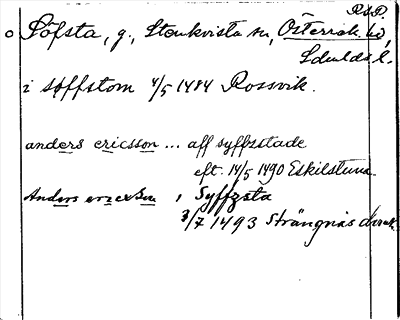 R.S.P.
o Söfsta, g., Stenkvista sn, Österrek. hd,
Södmld. l.
i søffstom 4/5 1484 Rossvik.
anders ericsson ... aff syffzstade
eft. 14/5 1490 Eskilstuna
Anders ericksen i Syffzsta
3/7 1493 Strängnäs